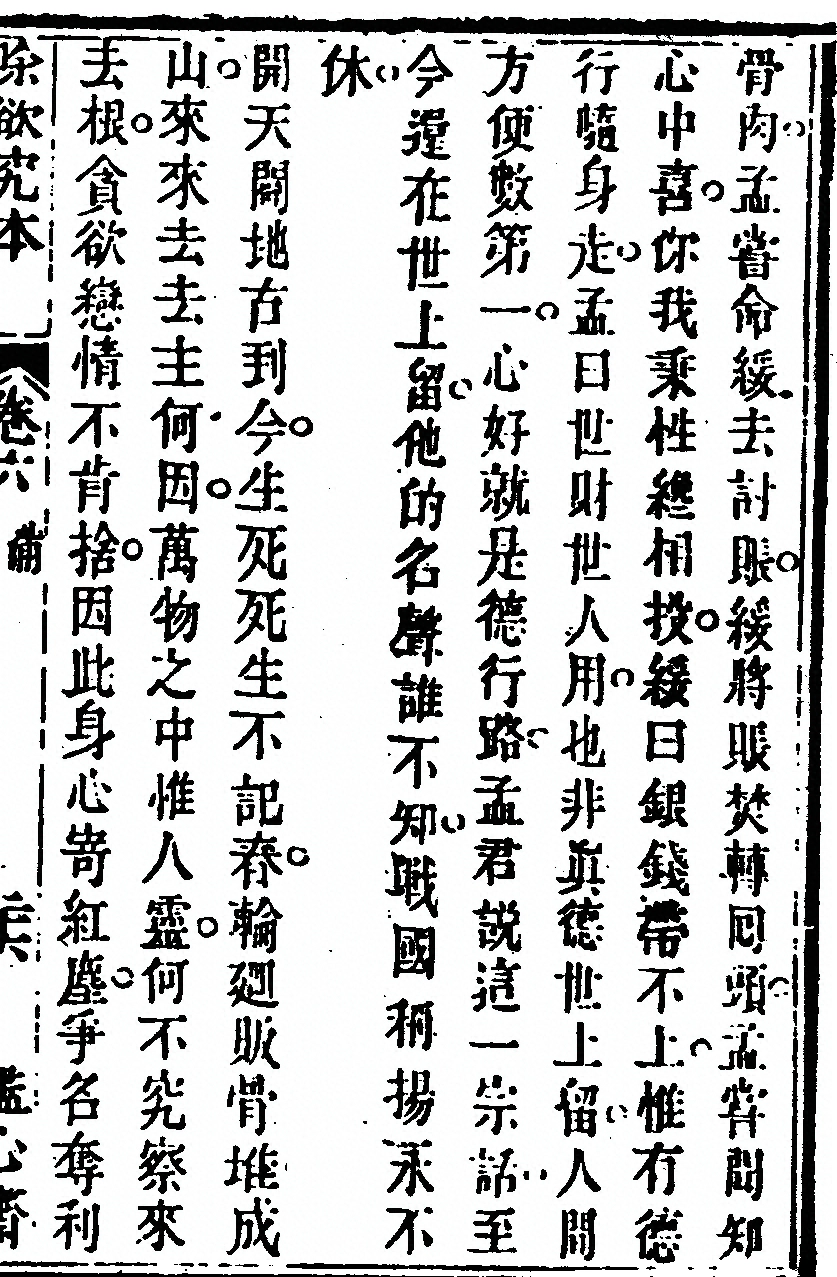 骨肉孟嘗命緩去討賬緩將賬焚轉囘頭孟嘗聞知
心中喜你我秉性纔相投緩曰銀錢帶不上惟有德
行隨身走孟曰世財世人用也非眞德世上留人間
方便數第一心好就是德行路孟君說這一宗話至
今還在世上留他的名聲誰不知戰國稱揚永不
休
開天闢地古到今生死死生不記春輪廻販骨堆成
山來來去去主何因萬物之中惟人靈何不究察來
去根貪欲戀情不肯捨因此身心寄紅塵爭名奪利
除欲究本
卷六